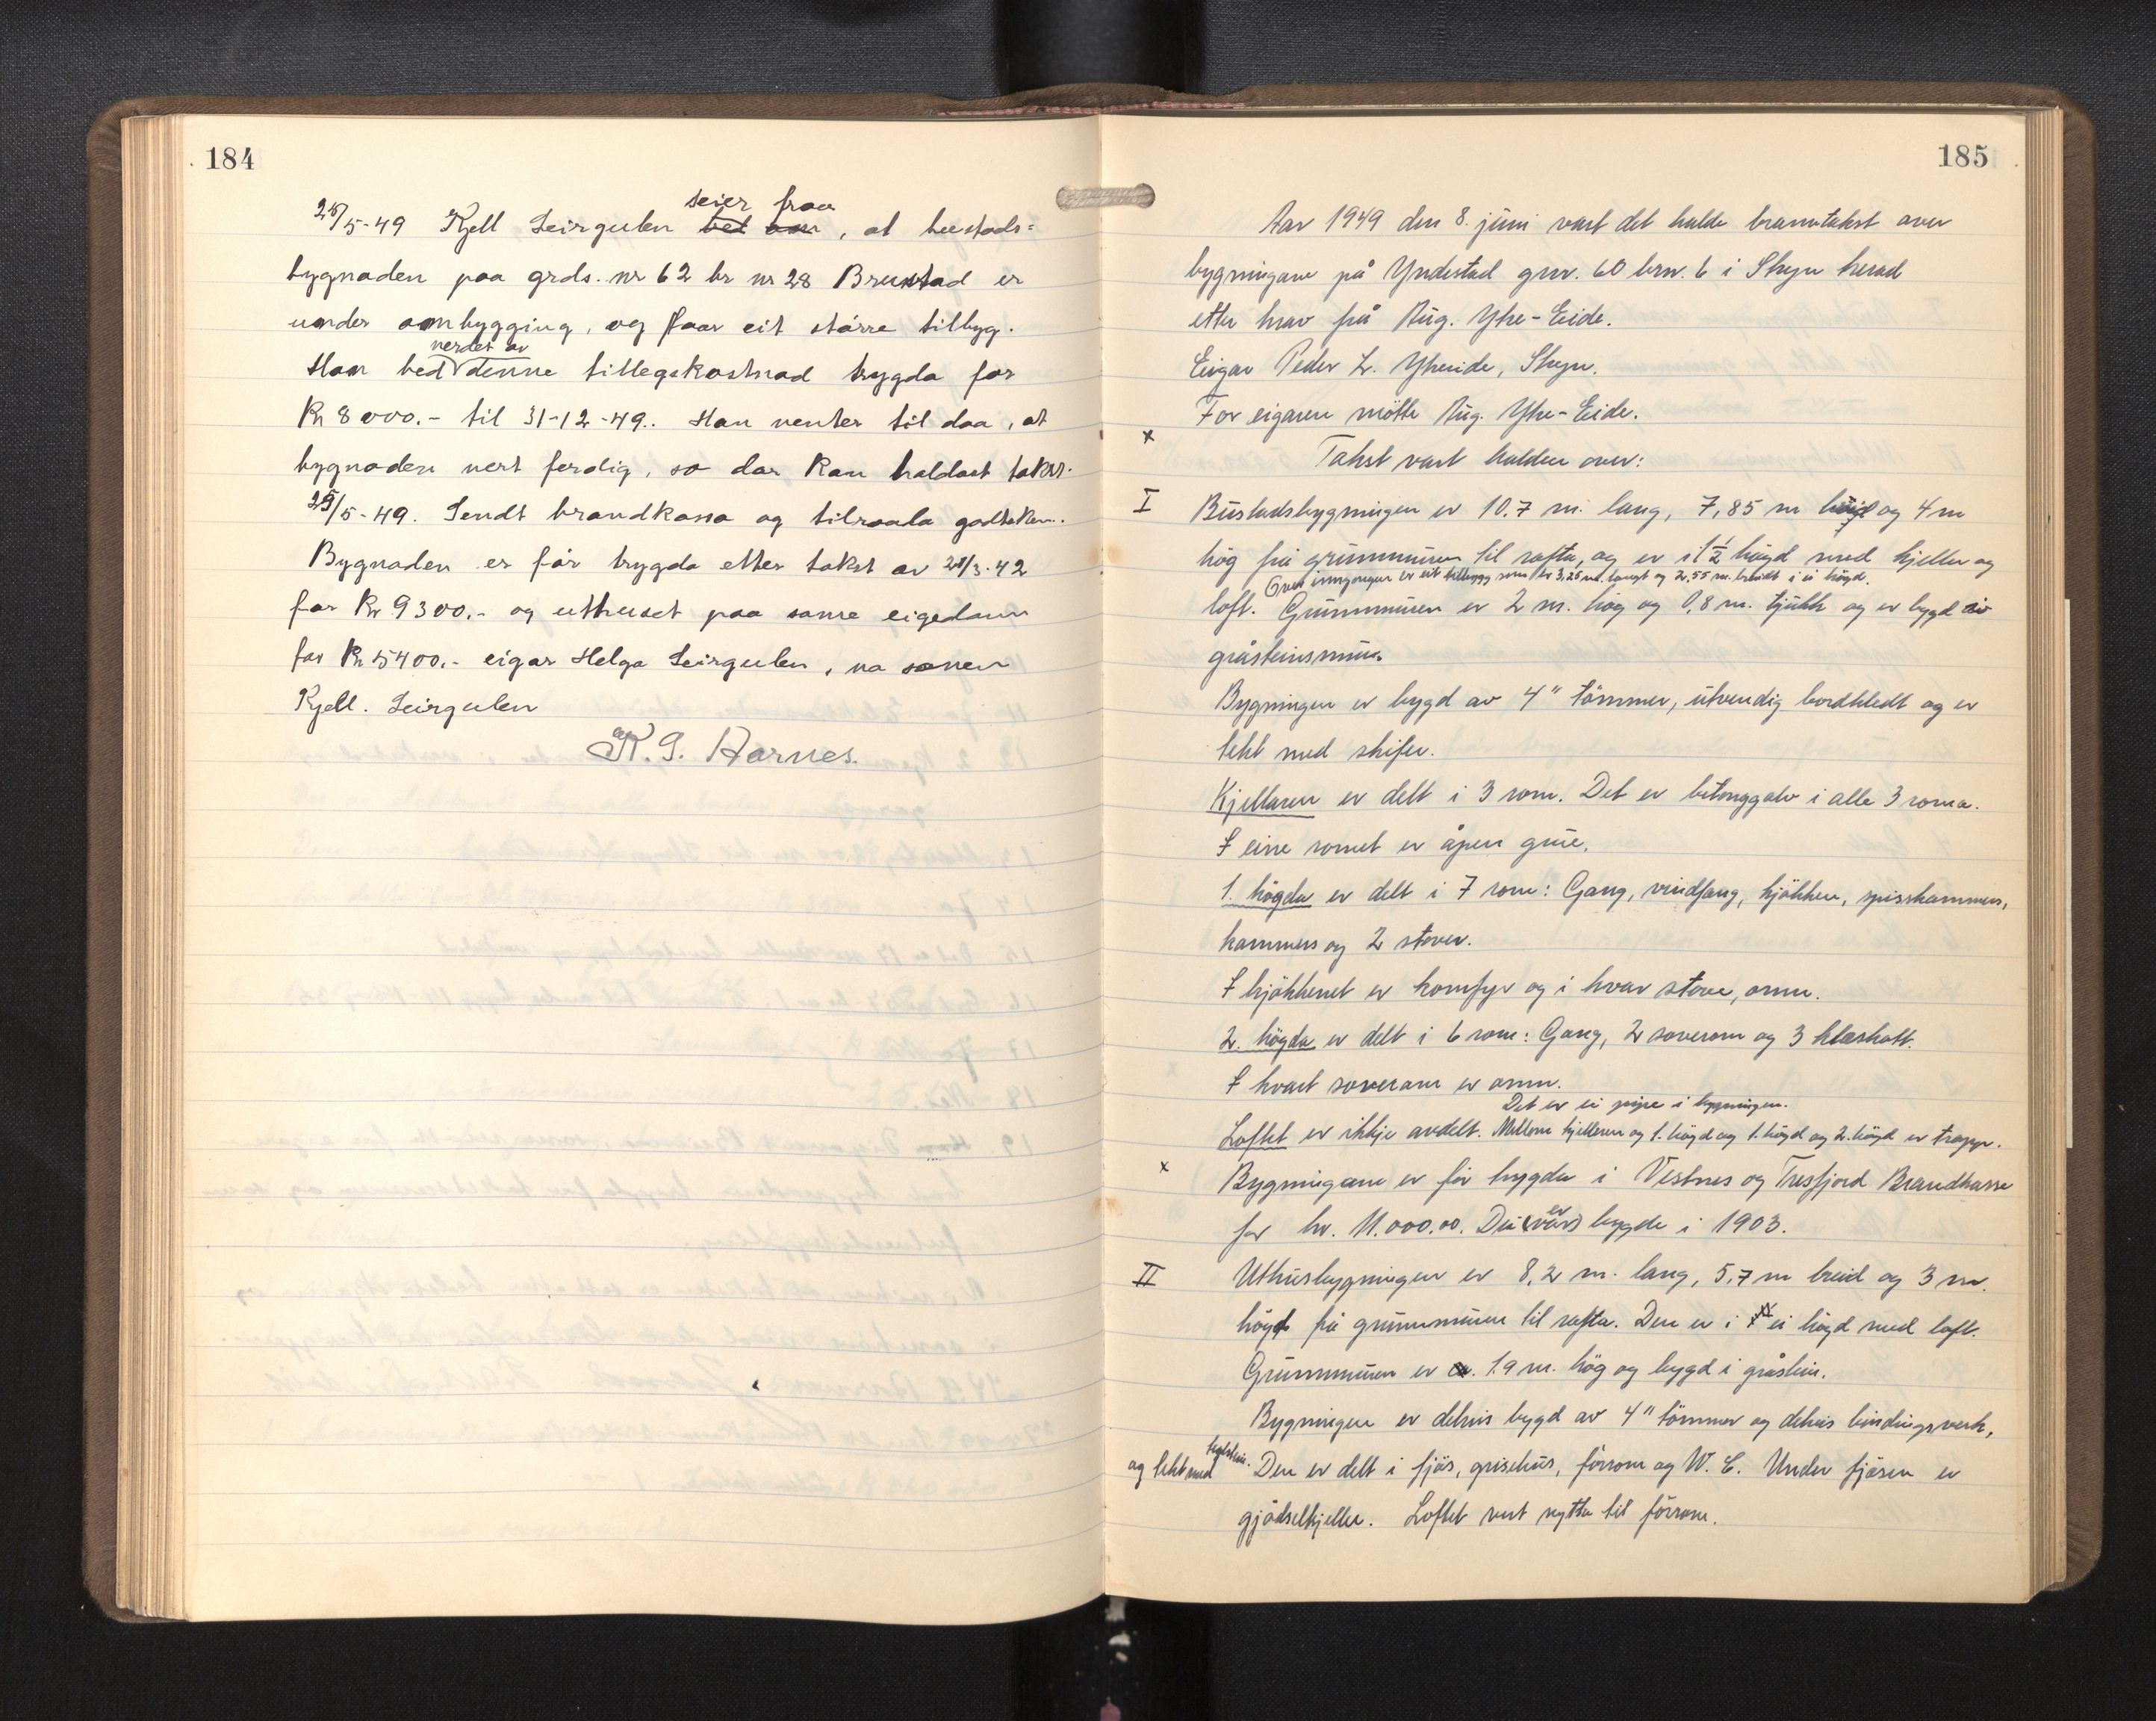 184
seier fraa
28/5-49 Kjell Leirgulen bed om, at bustads-
bygnaden paa grds. nr 62 br nr 28 Brunstad er
under ombygging, og faar eit större tilbyg.
verdet av
Han bed denne tillegskostnad trygda for
Kr 8000.- til 31-12-49. Han venter til daa, at
bygnaden vert ferdig, so dar kan haldast takst.
/5-49. Sendt brandkassa og tilraada godteken.
Bygnaden er för trygda etter takst av 28/3-42
for Kr 9300.- og uthuset paa same eigedom
for Kr 5400.- eigar Helga Leirgulen, no sonen
Kjell. Leirgulen
K. G. Aarnes.
185
Aar 1949 den 8. juni vart det halde branntakst over
bygningane på Yndestad gnr. 60 brn. 6 i Skyn herad
etter krav frå Aug. Yhre-Eide.
Eigar Peder L. Yhreide, Skyn.
For eigaren mötte Aug. Yhre-Eide.
x
Takst vart halden over:
I Bustadsbygningen er 10.7 m. lang, 7,85 m og 4 m
hög frå grunnmuren til rafta, og er i 1 1/2 högd med kjellar og
Over inngangen er eit tilbygg som er 3,25 m. langt og 2,55 m. breidt i ei högd.
loft. Grunnmuren er 2 m. hög og 0,8 m. tjukk og er bygd av
gråsteinsmur.
Bygningen er bygd av 4" tömmer, utvendig bordkledt og er
tekt med skifer.
Kjellaren er delt i 3 rom. Det er betonggolv i alle 3 roma.
I eine romet er åpen grue.
1. högda er delt i 7 rom: Gang, vindfang, kjökken, spisskammers,
kammers og 2 stover.
I kjökkenet er komfyr og i hvar stove, omn.
2. högda er delt i 6 rom: Gang, 2 soverom og 3 kleskott.
I hvart soverom er omn.
Det er ei pipe i bygningen.
Loftet er ikkje avdelt. Mellom kjelleren og 1. högd og 1. högd og 2. högd er trapp.
x
Bygningane er för trygda i Vestnes og Tresfjord Brandkasse
er
for kr. 11.000.00. Dei (vart) bygde i 1903.
II Uthusbygningen er 8,2 m. lang, 5,7 m breid og 3 m.
högd frå grunnmuren til rafta. Den er i ei högd med loft.
Grunnmuren er ca. 1.9 m. hög og bygd i gråstein.
Bygningen er delvis bygd av 4" tömmer og delvis bindingsverk,
teglstein.
og tekt med Den er delt i fjös, grisehus, förrom og W. C. Under fjösen er
gjödselkjeller. Loftet vert nytta til förrom.